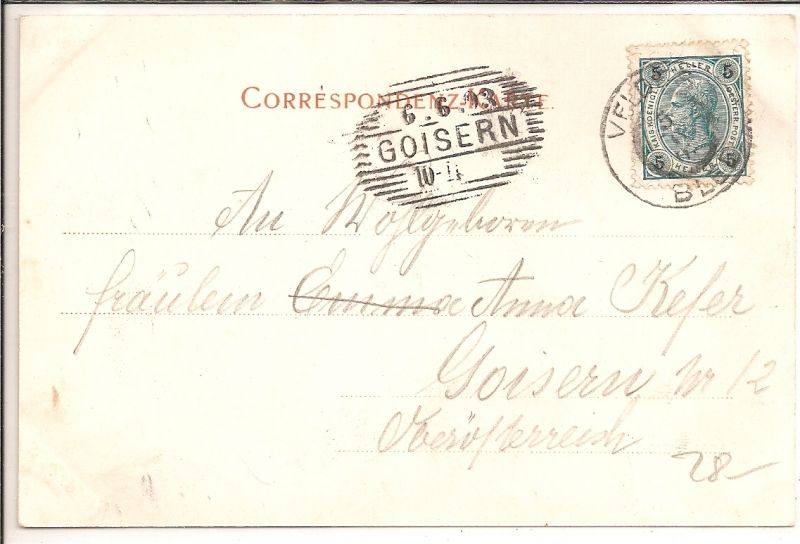 CORRESPONDENZ-KARTE.
6.6.03
GOISERN
10-11
5 HELLER 5
KAIS. KOENIGL. OESTERR. POST
5 HELLER 5
An Wohlgeboren
fräulein Emma Anna Kefer
Goisern Nr 12
Oberösterreich
28